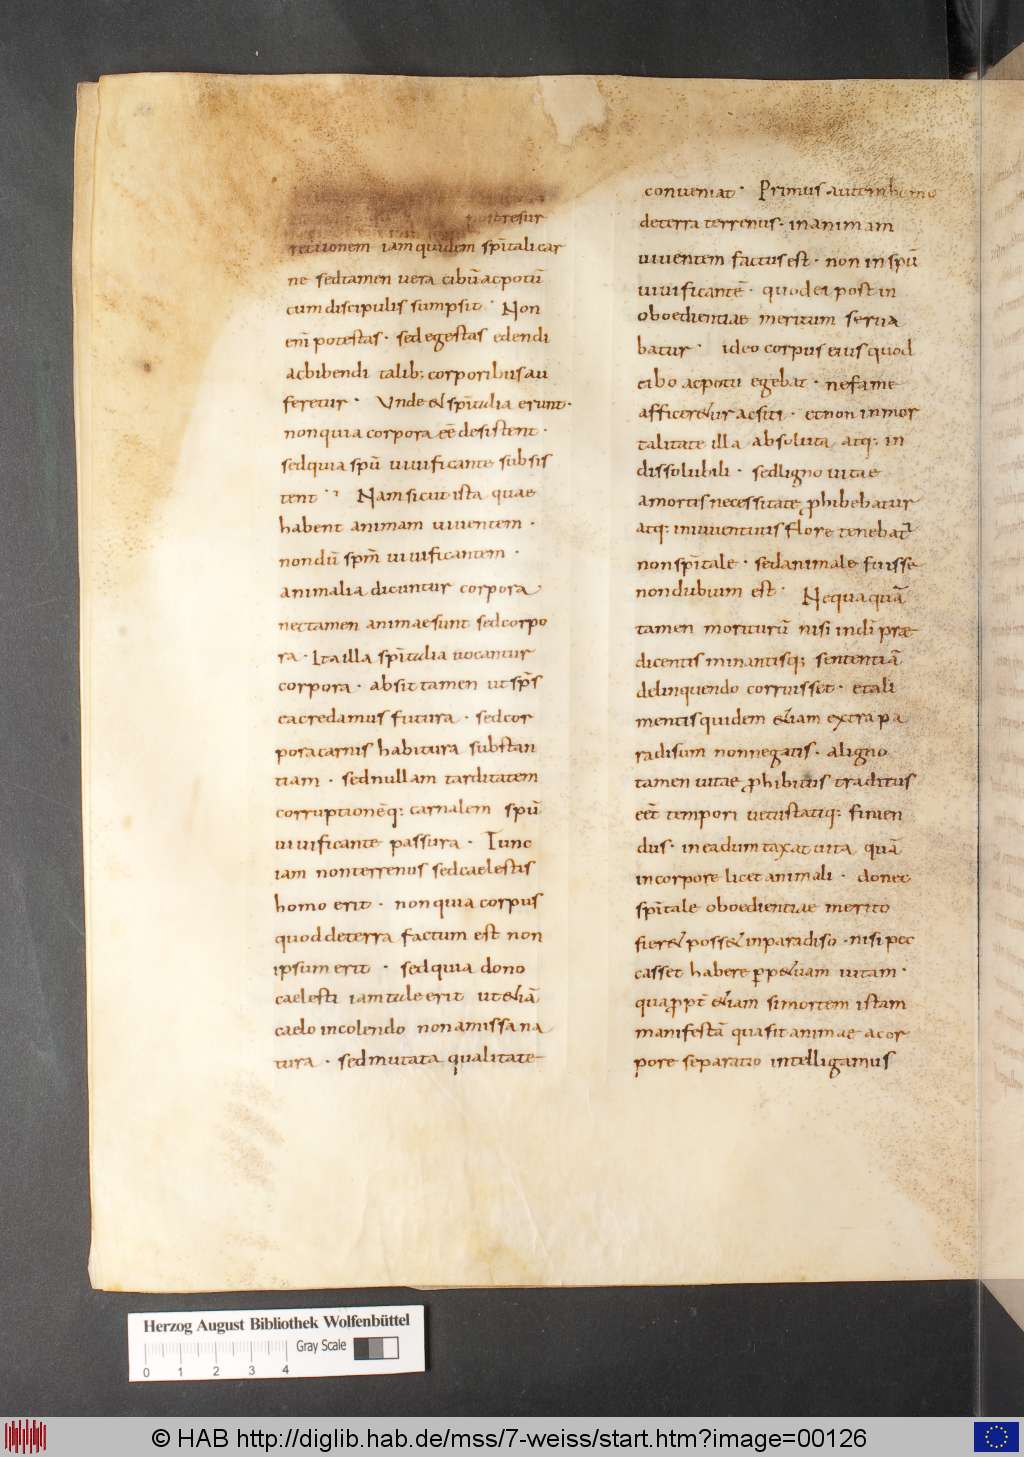 post resur
rectionem iam quidem sp̅itali car
ne sed tamen uera cibu̅ ac potu̅
cum discipulis sumpsit · Non
eni̅ potestas · sed egestas edendi
ac bibendi talib; corporibus au
feretur · Unde et sp̅italia erunt ·
non quia corpora ee̅ desistent ·
sed quia spu̅ uiuificante subsis
tent · Nam sicut ista quae
habent animam uiuentem ·
nondu̅ spm̅ uiuificantem ·
animalia dicuntur corpora
nec tamen animae sunt sed corpo
ra · Ita illa sp̅italia uocantur
corpora · absit tamen ut sp̅s
ea credamus futura · sed cor
pora carnis habitura substan
tiam · sed nullam tarditatem
corruptione̅q: carnalem spu̅
uiuificante passura · Tunc
iam non terrenus sed caelestis
homo erit · non quia corpus
quod de terra factum est non
ipsum erit · sed quia dono
caelesti iam tale erit ut etia̅
caelo incolendo non amissa na
tura · sed mutata qualitate
conueniat · Primus autem homo
de terra terrenus · in animam
uiuentem factus est · non in spu̅
uiuificante̅ · quod ei post in
oboedientiae meritum serua
batur · ideo corpus eius quod
cibo ac potu egebat · ne fame
afficeretur ac siti · et non in mor
talitate illa absoluta atq: in
dissolubili · sed ligno uitae
a mortis necessitate ꝓhibebatur
atq: in iuuentutis flore tenebat᷑
non sp̅itale · sed animale fuisse
non dubium est · Nequaqua̅
tamen morituru̅ nisi in di̅ prae
dicentis minantisq; sententia̅
delinquendo corruisset · et ali
mentis quidem etiam extra pa
radisum non negatis · a ligno
tamen uitae ꝓhibitus traditus
eet̅ tempori uetustatiq: finien
dus · in ea dumtaxat uita qua̅
in corpore licet animali · donec
sp̅itale oboedientiae merito
fieret posset in paradiso · nisi pec
casset habere ꝑpetuam uitam ·
quaꝓpt̅ etiam si mortem istam
manifesta̅ qua fit animae a cor
pore separatio intelligamus
Herzog August Bibliothek Wolfenbüttel
Gray Scale
0 1 2 3 4
© HAB http://diglib.hab.de/mss/7-weiss/start.htm?image=00126